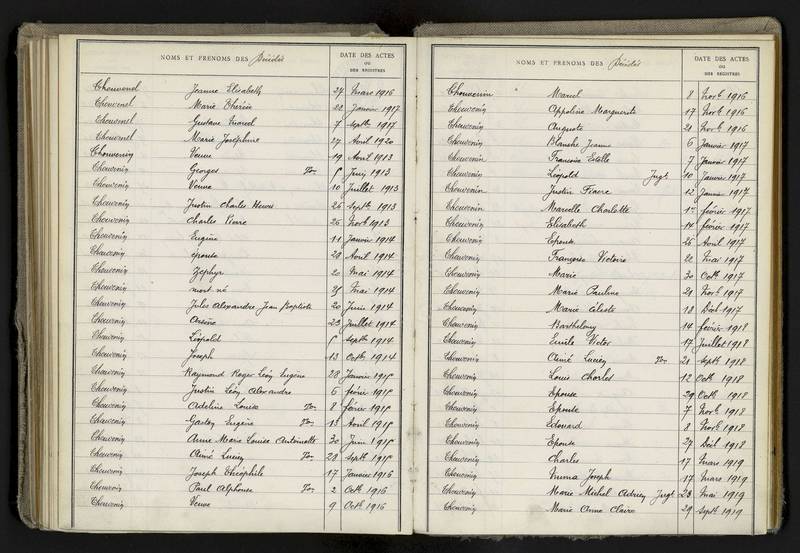 NOMS ET PRÉNOMS DES Décédés
DATE DES ACTES
OU
DES REGISTRES
Chouvenel Jeanne Elisabeth 27 Mars 1916
Chouvenel Marie Thérèse 22 Janvier 1917
Chouvenel Gustave Marcel 7 Septb 1917
Chouvenel Marie Joséphine 27 Avril 1920
Chouvenin Veuve 19 Avril 1913
Chouvenin Georges Juin 1913
Chouvenin Veuve 10 Juillet 1913
Chouvenin Justin Charles 26 Septb 1913
Chouvenin Charles Pierre 26 Novb 1913
Chouvenin Eugène 11 Janvier 1914
Chouvenin épouse 28 Avril 1914
Chouvenin Zéphyr 20 Mai 1914
Chouvenin mort-né 25 Mai 1914
Chouvenin Jules Alexandre Jean Baptiste 20 Juin 1914
Chouvenin Arsène 23 Juillet 1914
Chouvenin Léopold Septb 1914
Chouvenin Joseph 13 Octb 1914
Chouvenin Raymond Roger Léon Eugène 28 Janvier 1915
Chouvenin Justin Léon Alexandre 6 février 1915
Chouvenin Adeline Louise 8 février 1915
Chouvenin Gaston Eugène Avril 1915
Chouvenin Anne Marie Louise Antoinette 30 Juin 1915
Chouvenin Aimé Lucien 28 Septb 1915
Chouvenin Joseph Théophile 17 Janvier 1916
Chouvenin Paul Alphonse 2 Octb 1916
Chouvenin Veuve 9 Octb 1916
NOMS ET PRÉNOMS DES Décédés
DATE DES ACTES
OU
DES REGISTRES
Chouvenin Marcel 8 Novb 1916
Chouvenin Appoline Marguerite 17 Novb 1916
Chouvenin Auguste 20 Novb 1916
Chouvenin Blanche Jeanne 6 Janvier 1917
Chouvenin Francine Estelle 7 Janvier 1917
Chouvenin Léopold Jugt 10 Janvier 1917
Chouvenin Justin Fiacre 12 Janvier 1917
Chouvenin Marcelle Charlotte février 1917
Chouvenin Elisabeth 14 février 1917
Chouvenin Epouse 26 Avril 1917
Chouvenin Françoise Victoire 22 Mai 1917
Chouvenin Marie 30 Octb 1917
Chouvenin Marie Pauline 21 Novb 1917
Chouvenin Marie Céleste 18 Décb 1917
Chouvenin Barthelemy 14 février 1918
Chouvenin Emile Victor 17 Juillet 1918
Chouvenin Aimé Lucien 21 Septb 1918
Chouvenin Louis Charles 12 Octb 1918
Chouvenin Epouse 29 Octb 1918
Chouvenin Epouse 7 Novb 1918
Chouvenin Edouard 8 Novb 1918
Chouvenin Epouse 27 Décb 1918
Chouvenin Charles 17 Mars 1919
Chouvenin Numa Joseph 17 Mars 1919
Chouvenin Marie Michel Adrien Jugt 28 Mai 1919
Chouvenin Marie Anne Claire 29 Septb 1919